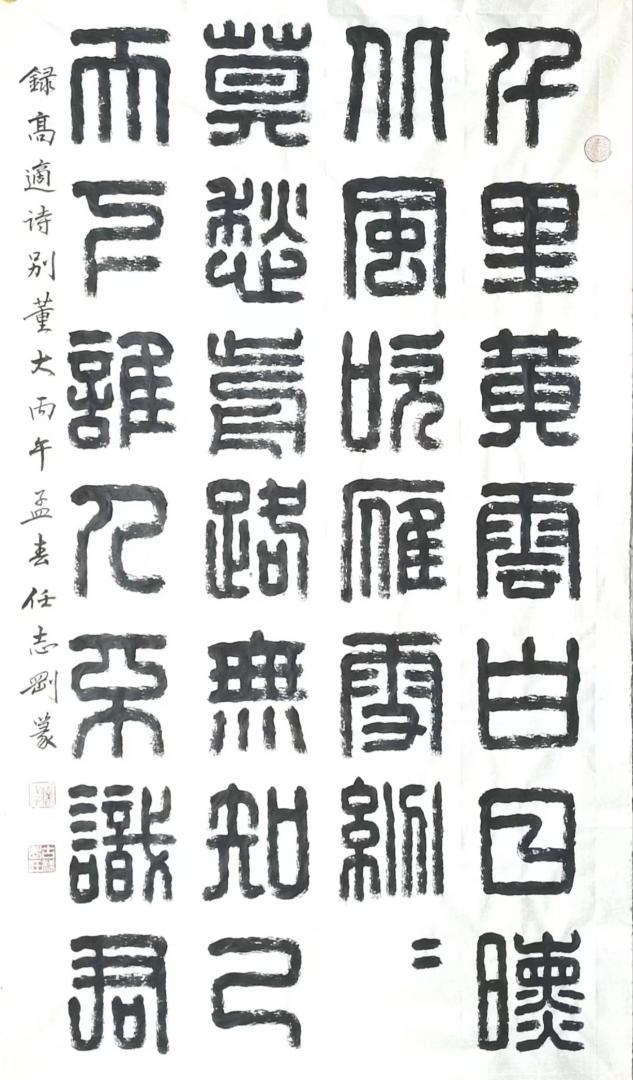 千里黄雲白日曛
北風吹雁雪紛〻
莫愁前路無知己
天下誰人不識君
録高適诗别董大丙午孟春任志剛篆